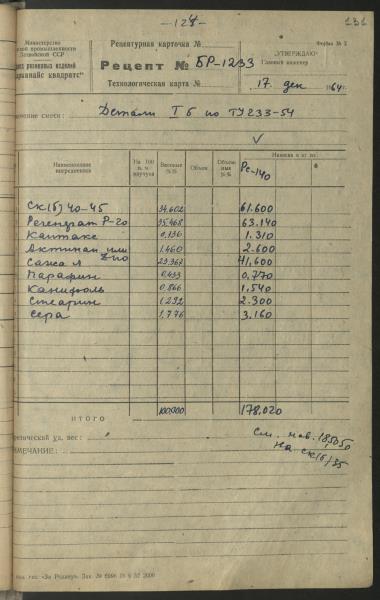 - 124 -
131
Министерство
промышленности
Латвийской ССР
резиновых изделий
квадратс"
Рецептурная карточка №
Рецепт № БР-1233
Технологическая карта №
Форма № 2
„УТВЕРЖДАЮ"
Главный инженер
17 дек 1964 г.
смеси: Детали Т Б по ТУ233-54
Наименование ингредиентов
На 100 в. ч. каучука
Весовые %%
Объем
Объемн. %%
Навески в кг по:
Рс-140
СК(б) 40-45 34.602 61.600
Регенерат Р-20 35.468 63.140
Каптакс 1.310
Активан или 1.460 2.600
ZnO
Сажа л 23.367 41,600
Парафин 0,433 0,770
Канифоль 0,866 1.540
Стеарин 1.292 2.300
Сера 1,776 3.160
ИТОГО 100,000 178.020
уд. вес:
См. нов. 185050
на СК(б) 35
ПРИМЕЧАНИЕ: